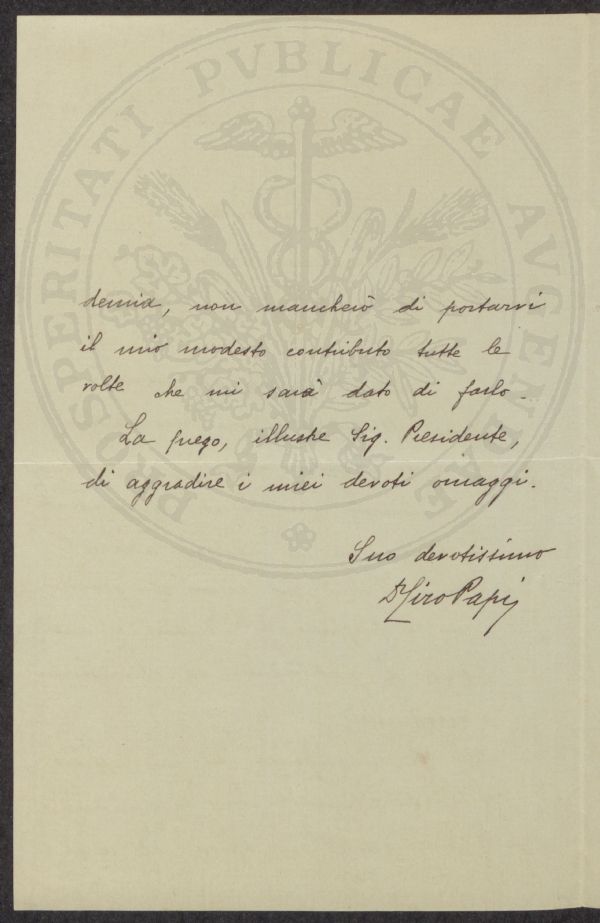 PROSPERITATI PVBLICAE AVGENDAE
demia, non mancherò di portarvi
il mio modesto contributo tutte le
volte che mi sarà dato di farlo.
La prego, illustre Sig. Presidente,
di aggradire i miei devoti omaggi.
Suo devotissimo
Dr Ciro Papi